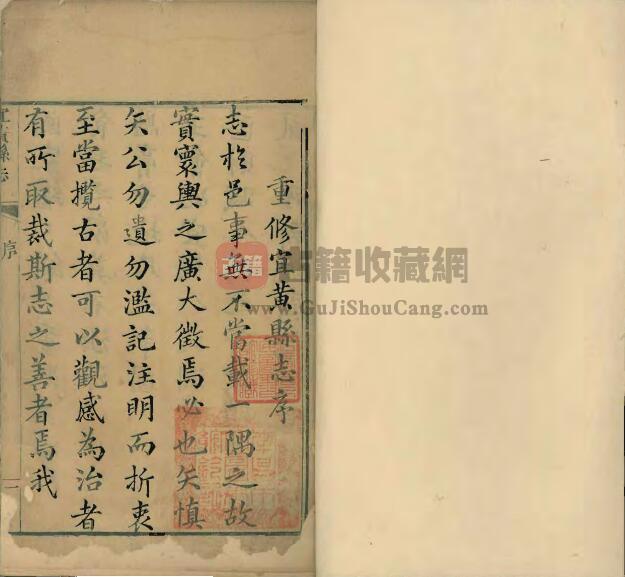 重修宜黃縣志序
志於邑事無不當載一隅之故
實寰輿之廣大徵焉必也矢慎
矢公勿遺勿濫記注明而折衷
至當攬古者可以觀感為治者
有所取裁斯志之善者焉我
宜黃縣志
序
一
古籍
古籍收藏網
www.GuJiShouCang.com